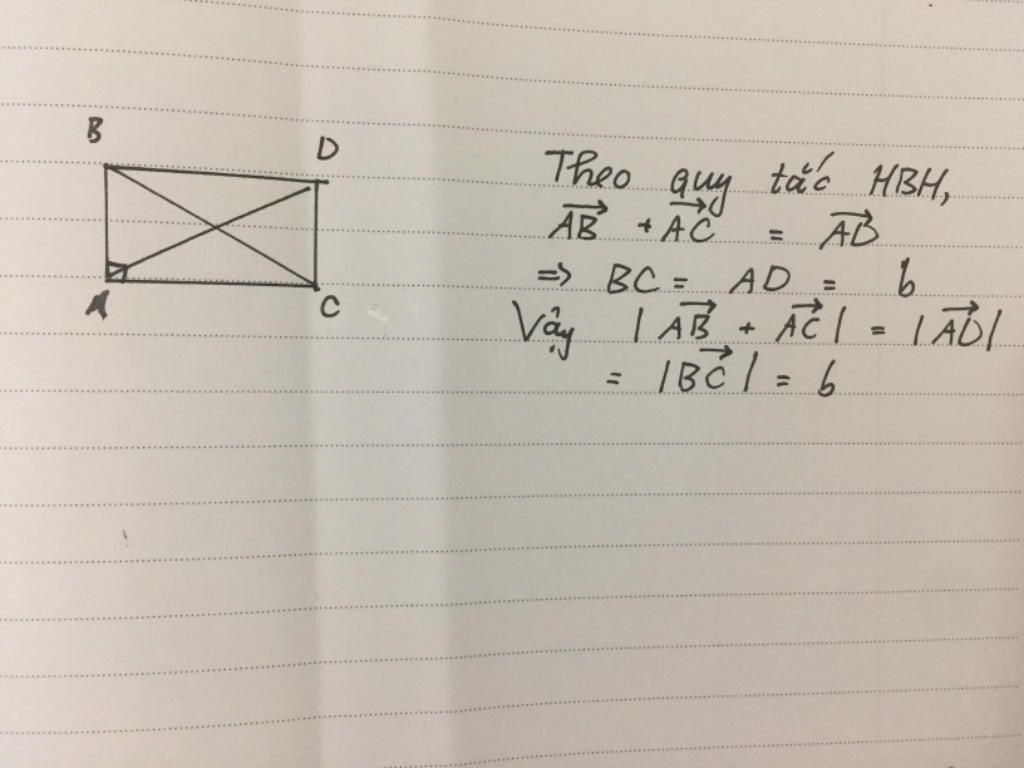 B
D
A
C
Theo quy tắc HBH,
$\overrightarrow{AB} + \overrightarrow{AC} = \overrightarrow{AD}$
=> BC = AD = b
Vậy $|\overrightarrow{AB} + \overrightarrow{AC}| = |\overrightarrow{AD}|$
$= |\overrightarrow{BC}| = b$